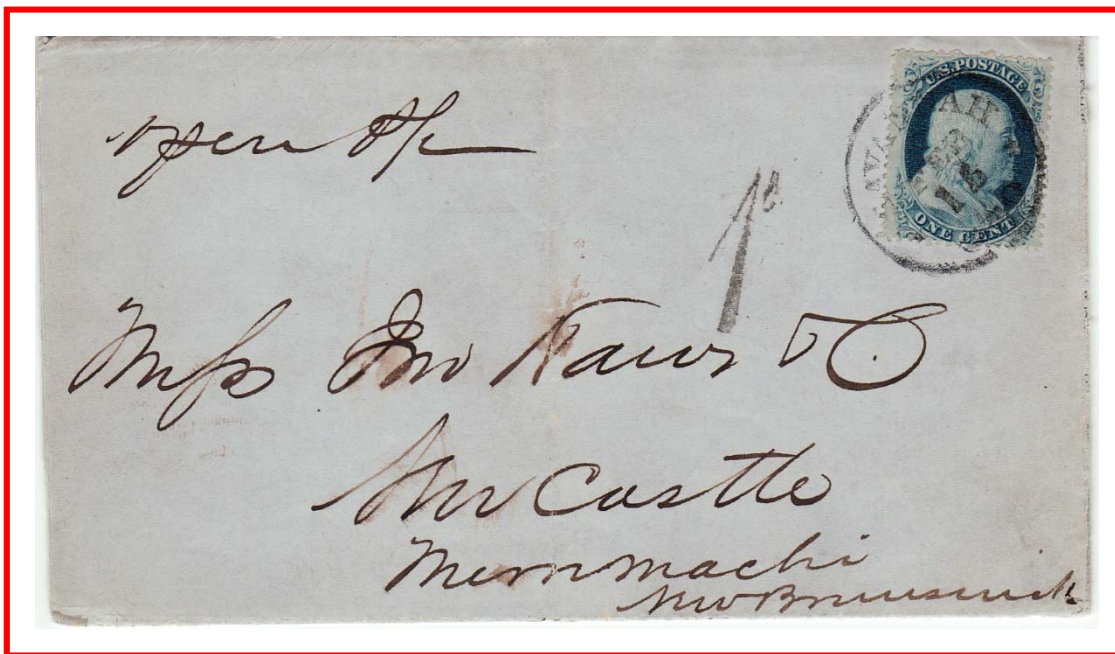 U.S. POSTAGE
ONE CENT
SAVANNAH
FEB
15
1d
open
Mess Jno & Co
New Castle
Mirrimachi
New Brunswick